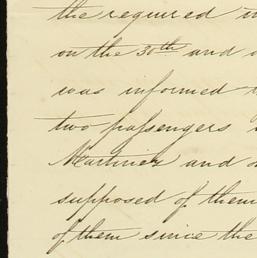 the required
on the 30th and
was informed
two passengers
Martinez and
supposed of them
of them since the